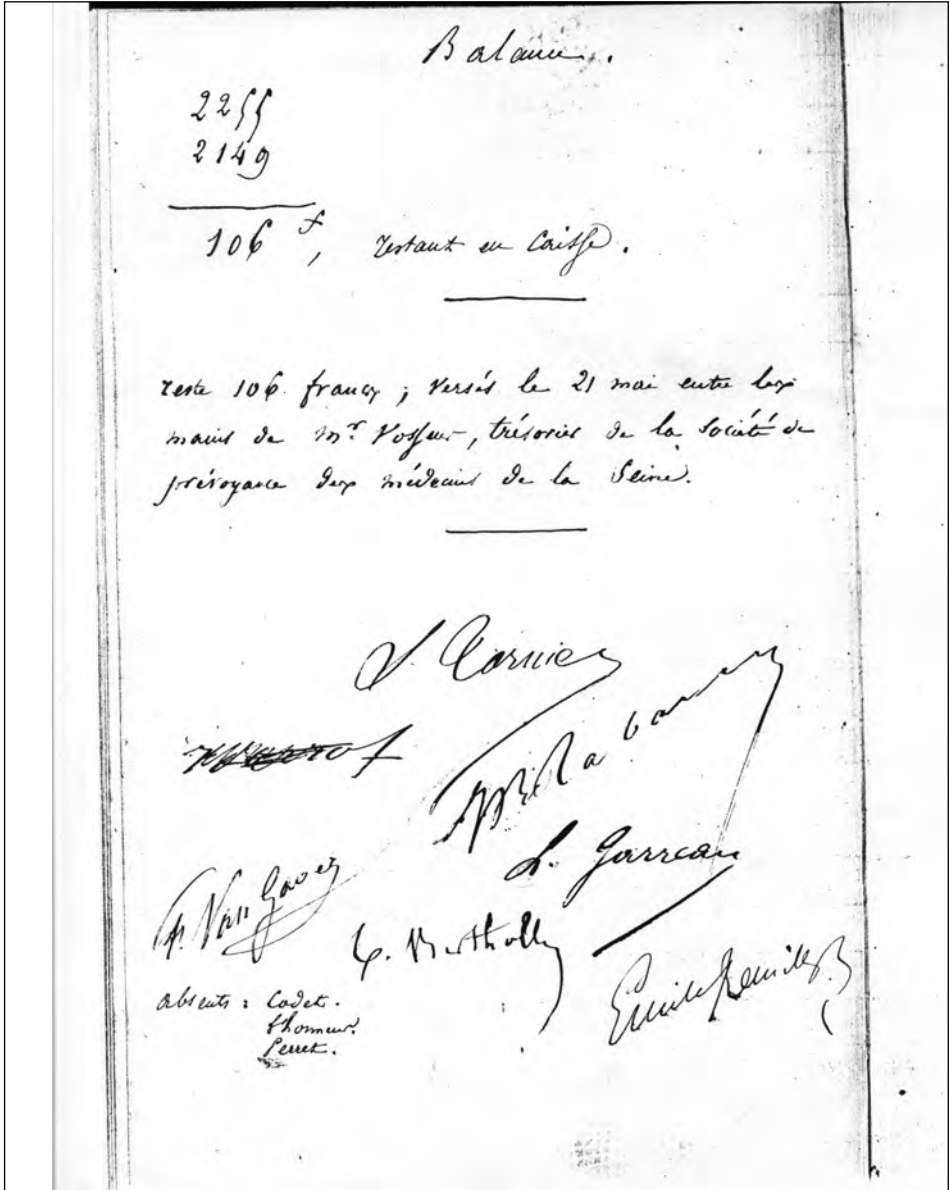 Balance.
2255
2149
106 f, restant en Caisse.
reste 106 francs ; versés le 21 mai entre les
mains de Mr Vosseur, trésorier de la Société de
prévoyance des médecins de la Seine.
S. Tarnier
L. Garreau
F. Van Gaver
C. Bertholle
Emile
absents : Cadet.
Lhonneur.
Perret.